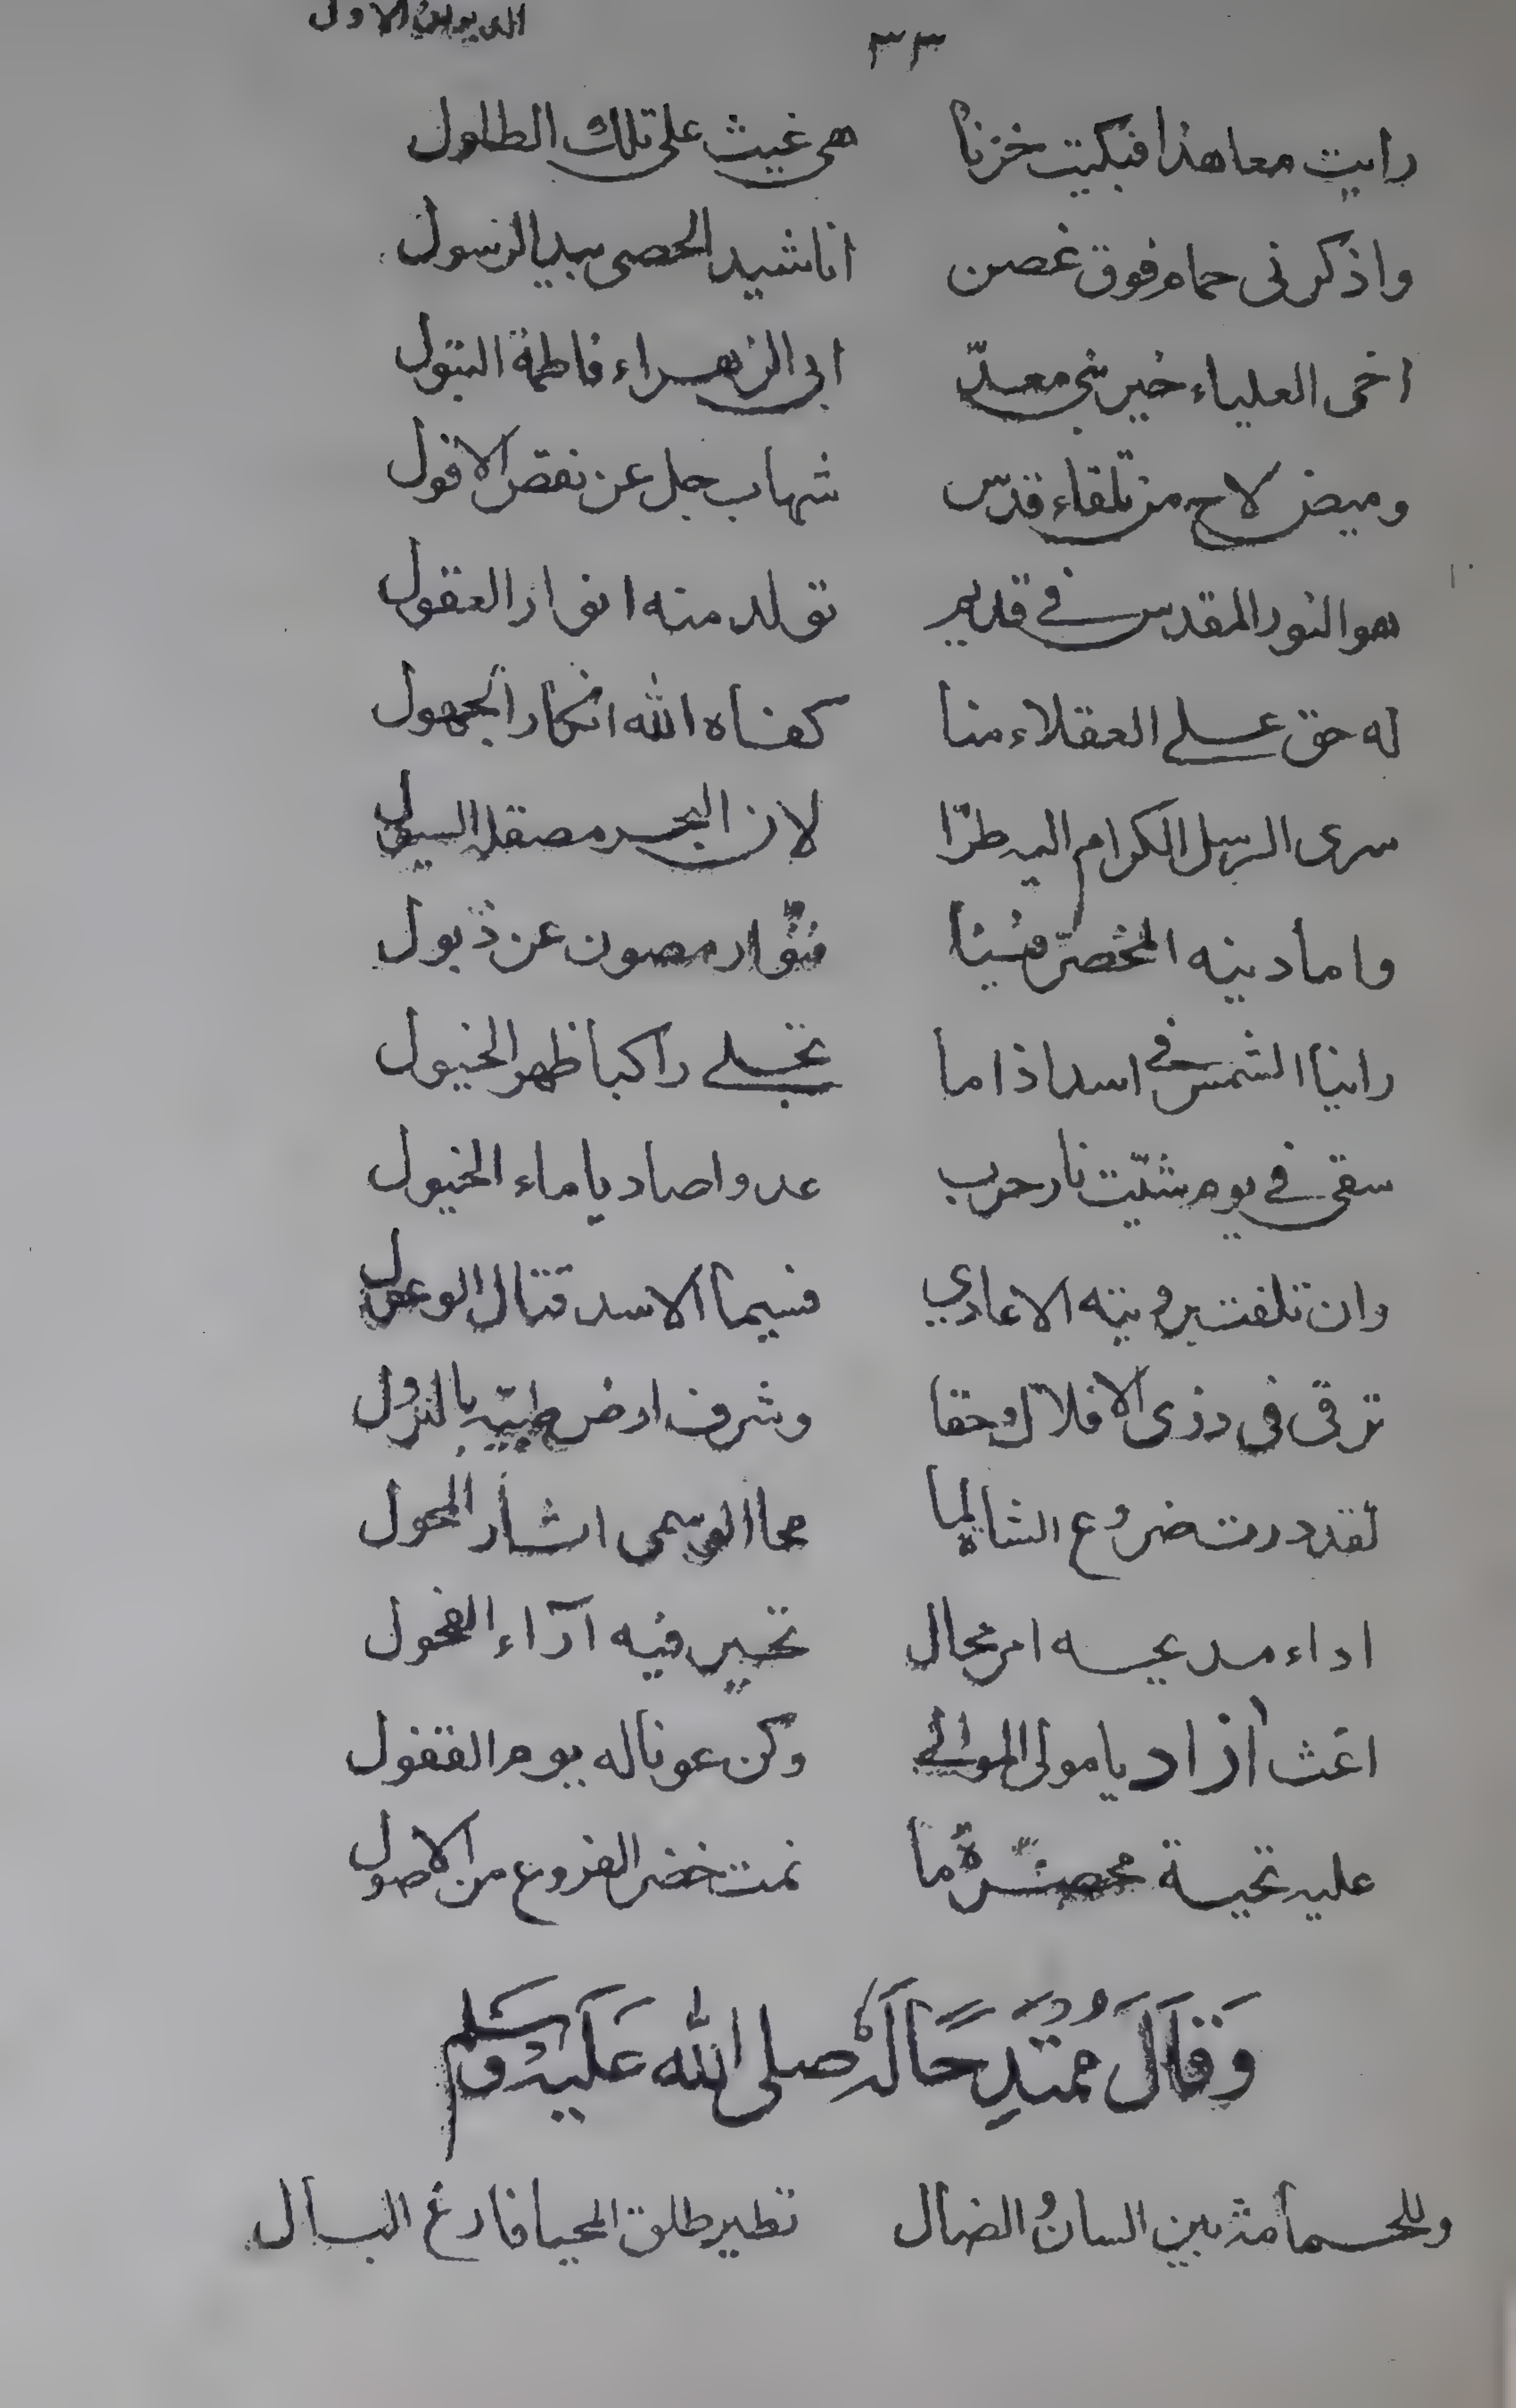 الديوان الاول
٣٣
رايت معاهدا فبكيت حزنا هى غيث على تلك الطلول
واذكرنى حمام فوق غصن اناشيد الحصى بيد الرسول
اخى العلياء خير بنى معدّ ابى الزهراء فاطمة البتول
وميض لاح من تلقاء قدس شهاب جل عن نقص الافول
هو النور المقدس فى قديم تولد منه انوار العقول
له حق على العقلاء منا كفاه الله انكار الجهول
سرى الرسل الكرام اليه طرّا لان البحر السيول
وما دينه المخضرّ فينا مصون عن ذبول
راينا الشمس فى اسد اذا ما تجلى راكبا ظهر الخيول
سقى فى يوم شبّت نار حرب عدوا صاديا ماء الخيول
وان تلفت برويته الاعادي فسيما الاسد قتال الوعول
ترقى فى ذرى الافلاك حقا وشرف ارض طيبة بالنزول
لقد درت ضروع الشاء لما محا الوسمى اثار المحول
اداء مديحه امر محال تحير فيه آراء الفحول
اغث آزاد يا مولى الموالى وكن عونا له يوم القفول
عليه تحية ما نمت خضر الفروع من الاصول
وَقَالَ مُمْتَدِحًا لَهُ صلى الله عَلَيْهِ وَسَلم
وللحمامة بين البان والضال تطير طلق المحيا فارغ البال